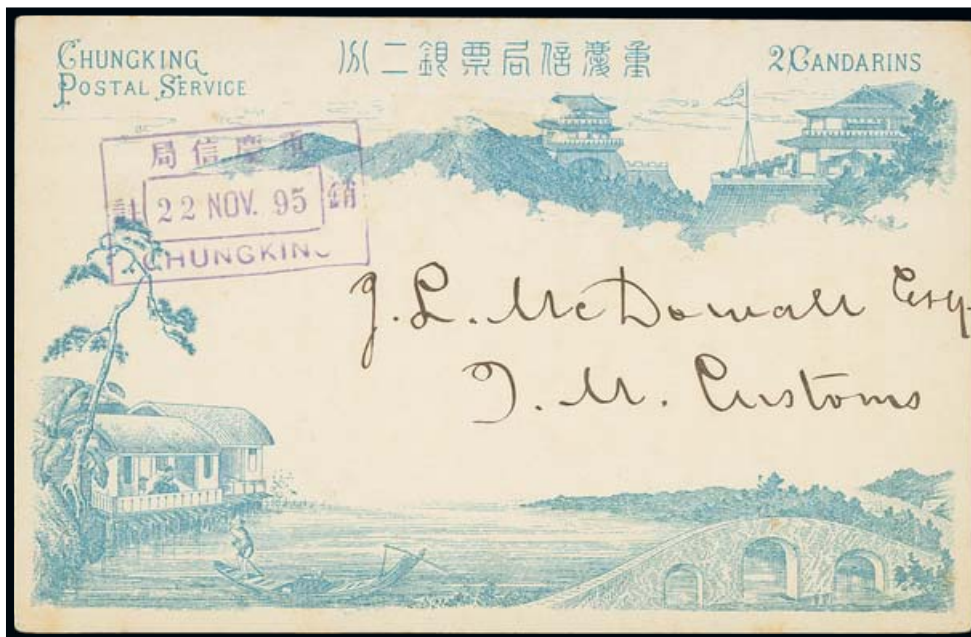 CHUNGKING
POSTAL SERVICE
重慶信局票銀二分
2 CANDARINS
重慶信局
銷註
22 NOV. 95
CHUNGKING
J. L. McDowall Esq.
I. M. Customs